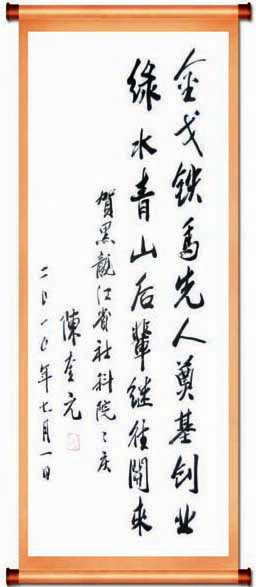 金戈铁马先人奠基创业
绿水青山后辈继往開来
賀黑龍江省社科院院庆
陳奎元
二〇一〇年七月一日